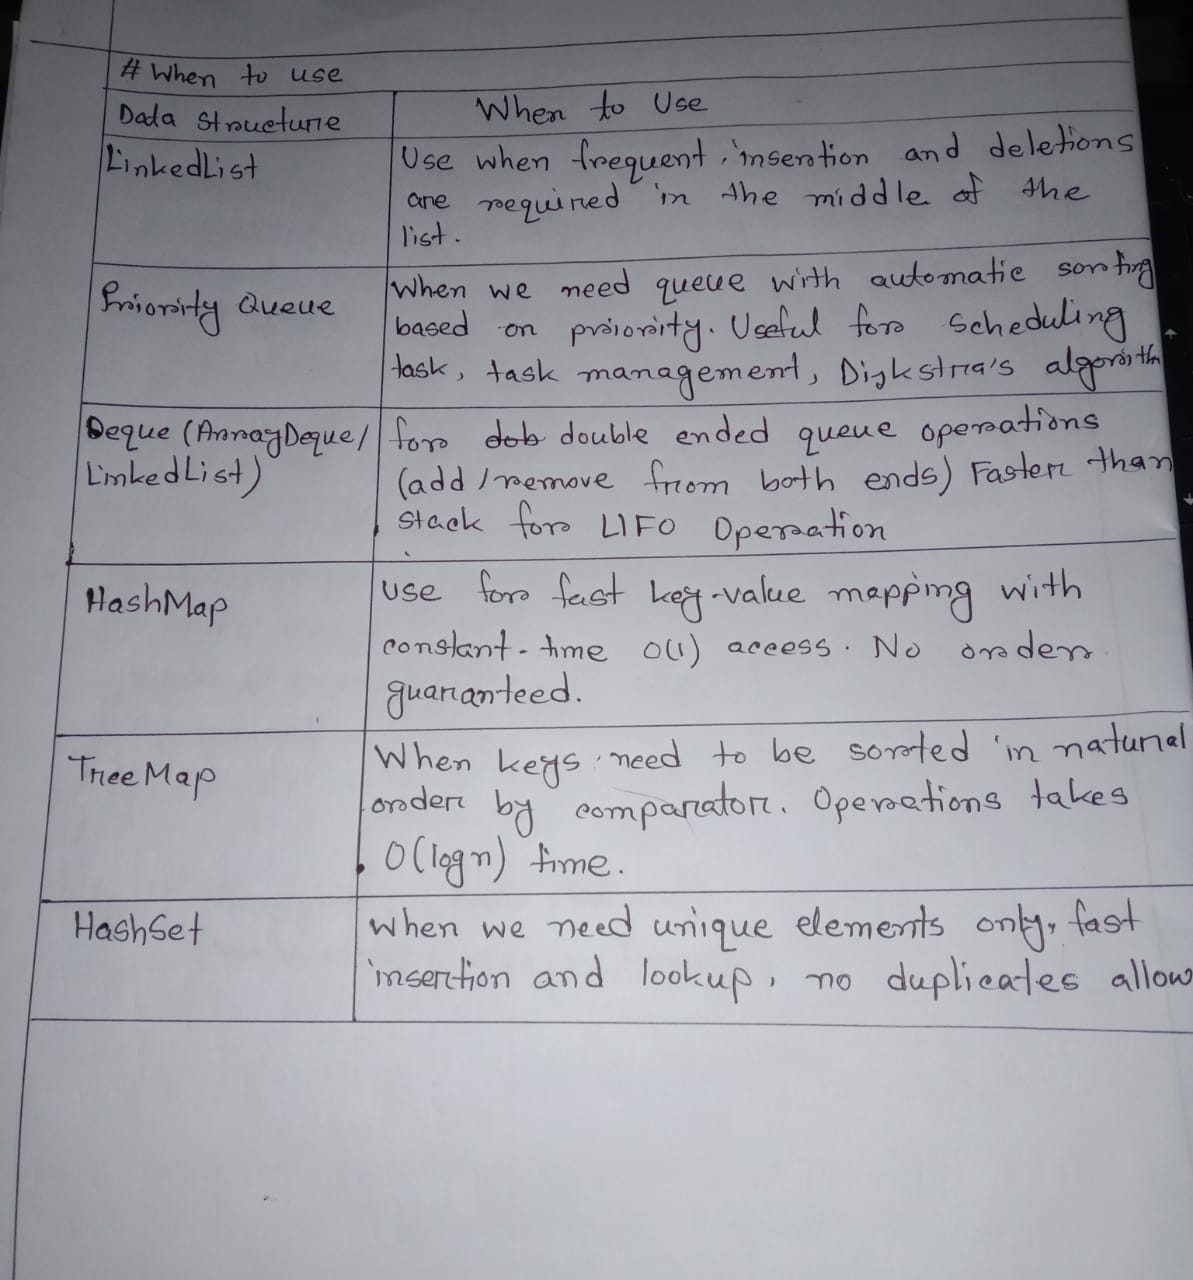 # When to use
Data Structure
When to Use
LinkedList
Use when frequent insertion and deletions
are required in the middle of the
list.
Priority Queue
When we need queue with automatic sorting
based on priority. Useful for Scheduling
task, task management, Dijkstra's algorithm
Deque (ArrayDeque/
LinkedList)
for dob double ended queue operations
(add / remove from both ends) Faster than
Stack for LIFO Operation
HashMap
Use for fast key-value mapping with
constant-time O(1) access. No order
guaranteed.
TreeMap
When keys need to be sorted in natural
order by comparator. Operations takes
O(log n) time.
HashSet
When we need unique elements only, fast
insertion and lookup, no duplicates allow